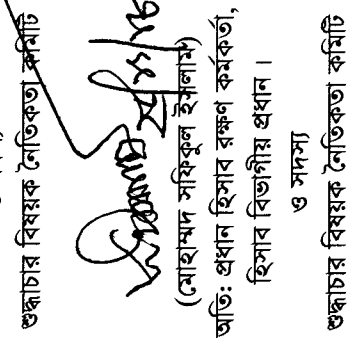 শুদ্ধাচার বিষয়ক নৈতিকতা কমিটি
(মোহাম্মদ সফিকুল ইসলাম)
অতি: প্রধান হিসাব রক্ষণ কর্মকর্তা,
হিসাব বিভাগীয় প্রধান।
ও সদস্য
শুদ্ধাচার বিষয়ক নৈতিকতা কমিটি